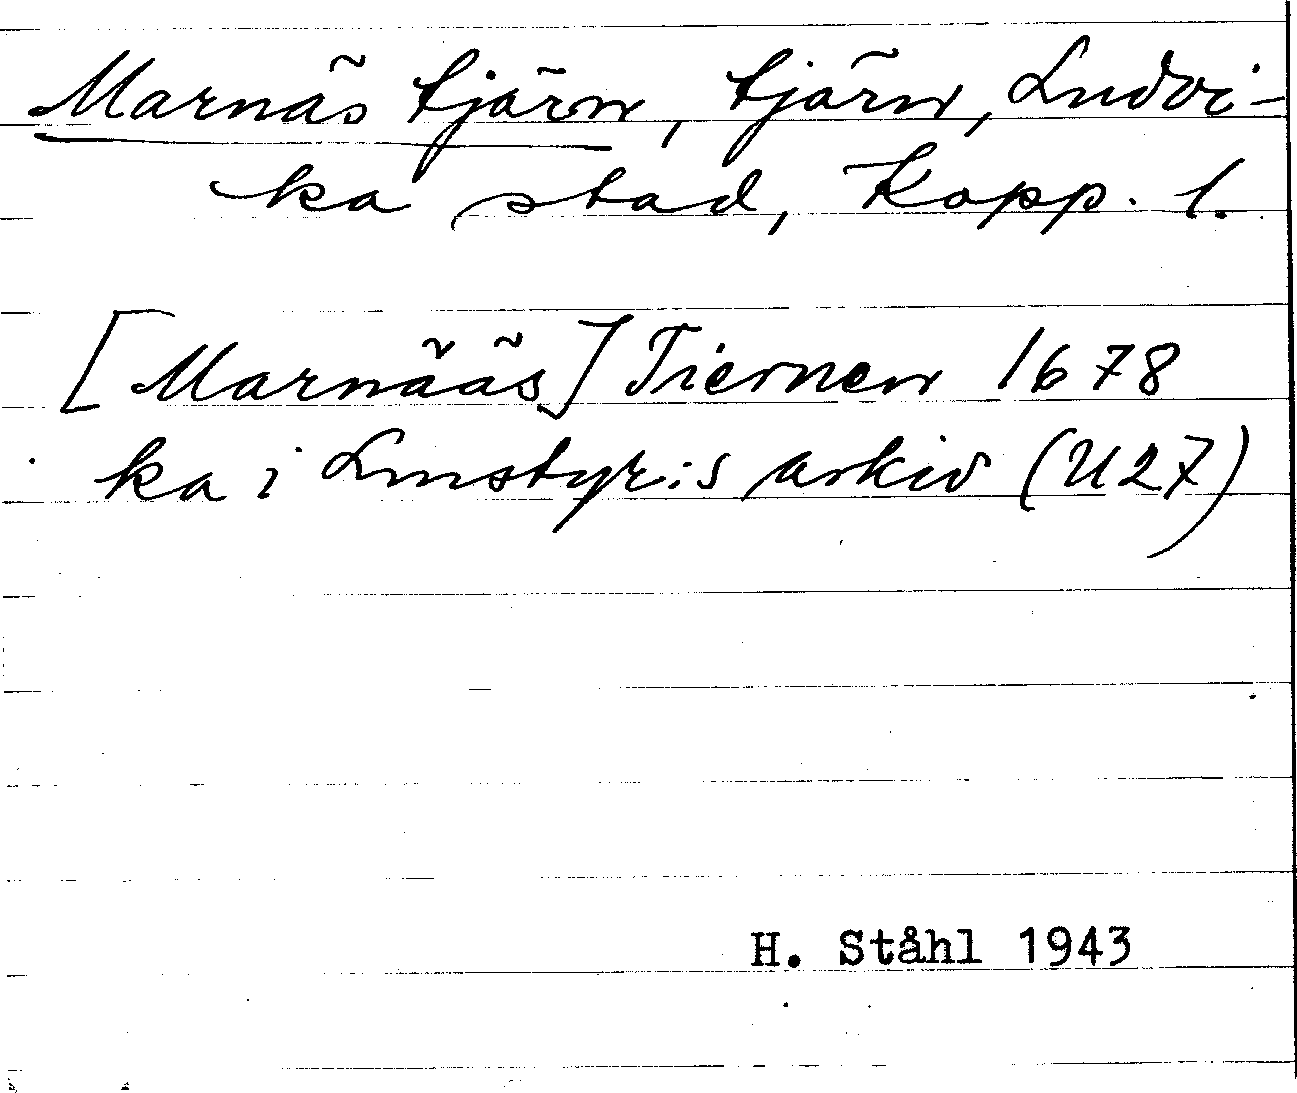 Marnäs tjärn, tjärn, Ludvi-
ka stad, Kopp. l.
[Marnääs] Tiernen 1678
ka i Lmstyr:s arkiv (U27)
H. Ståhl 1943